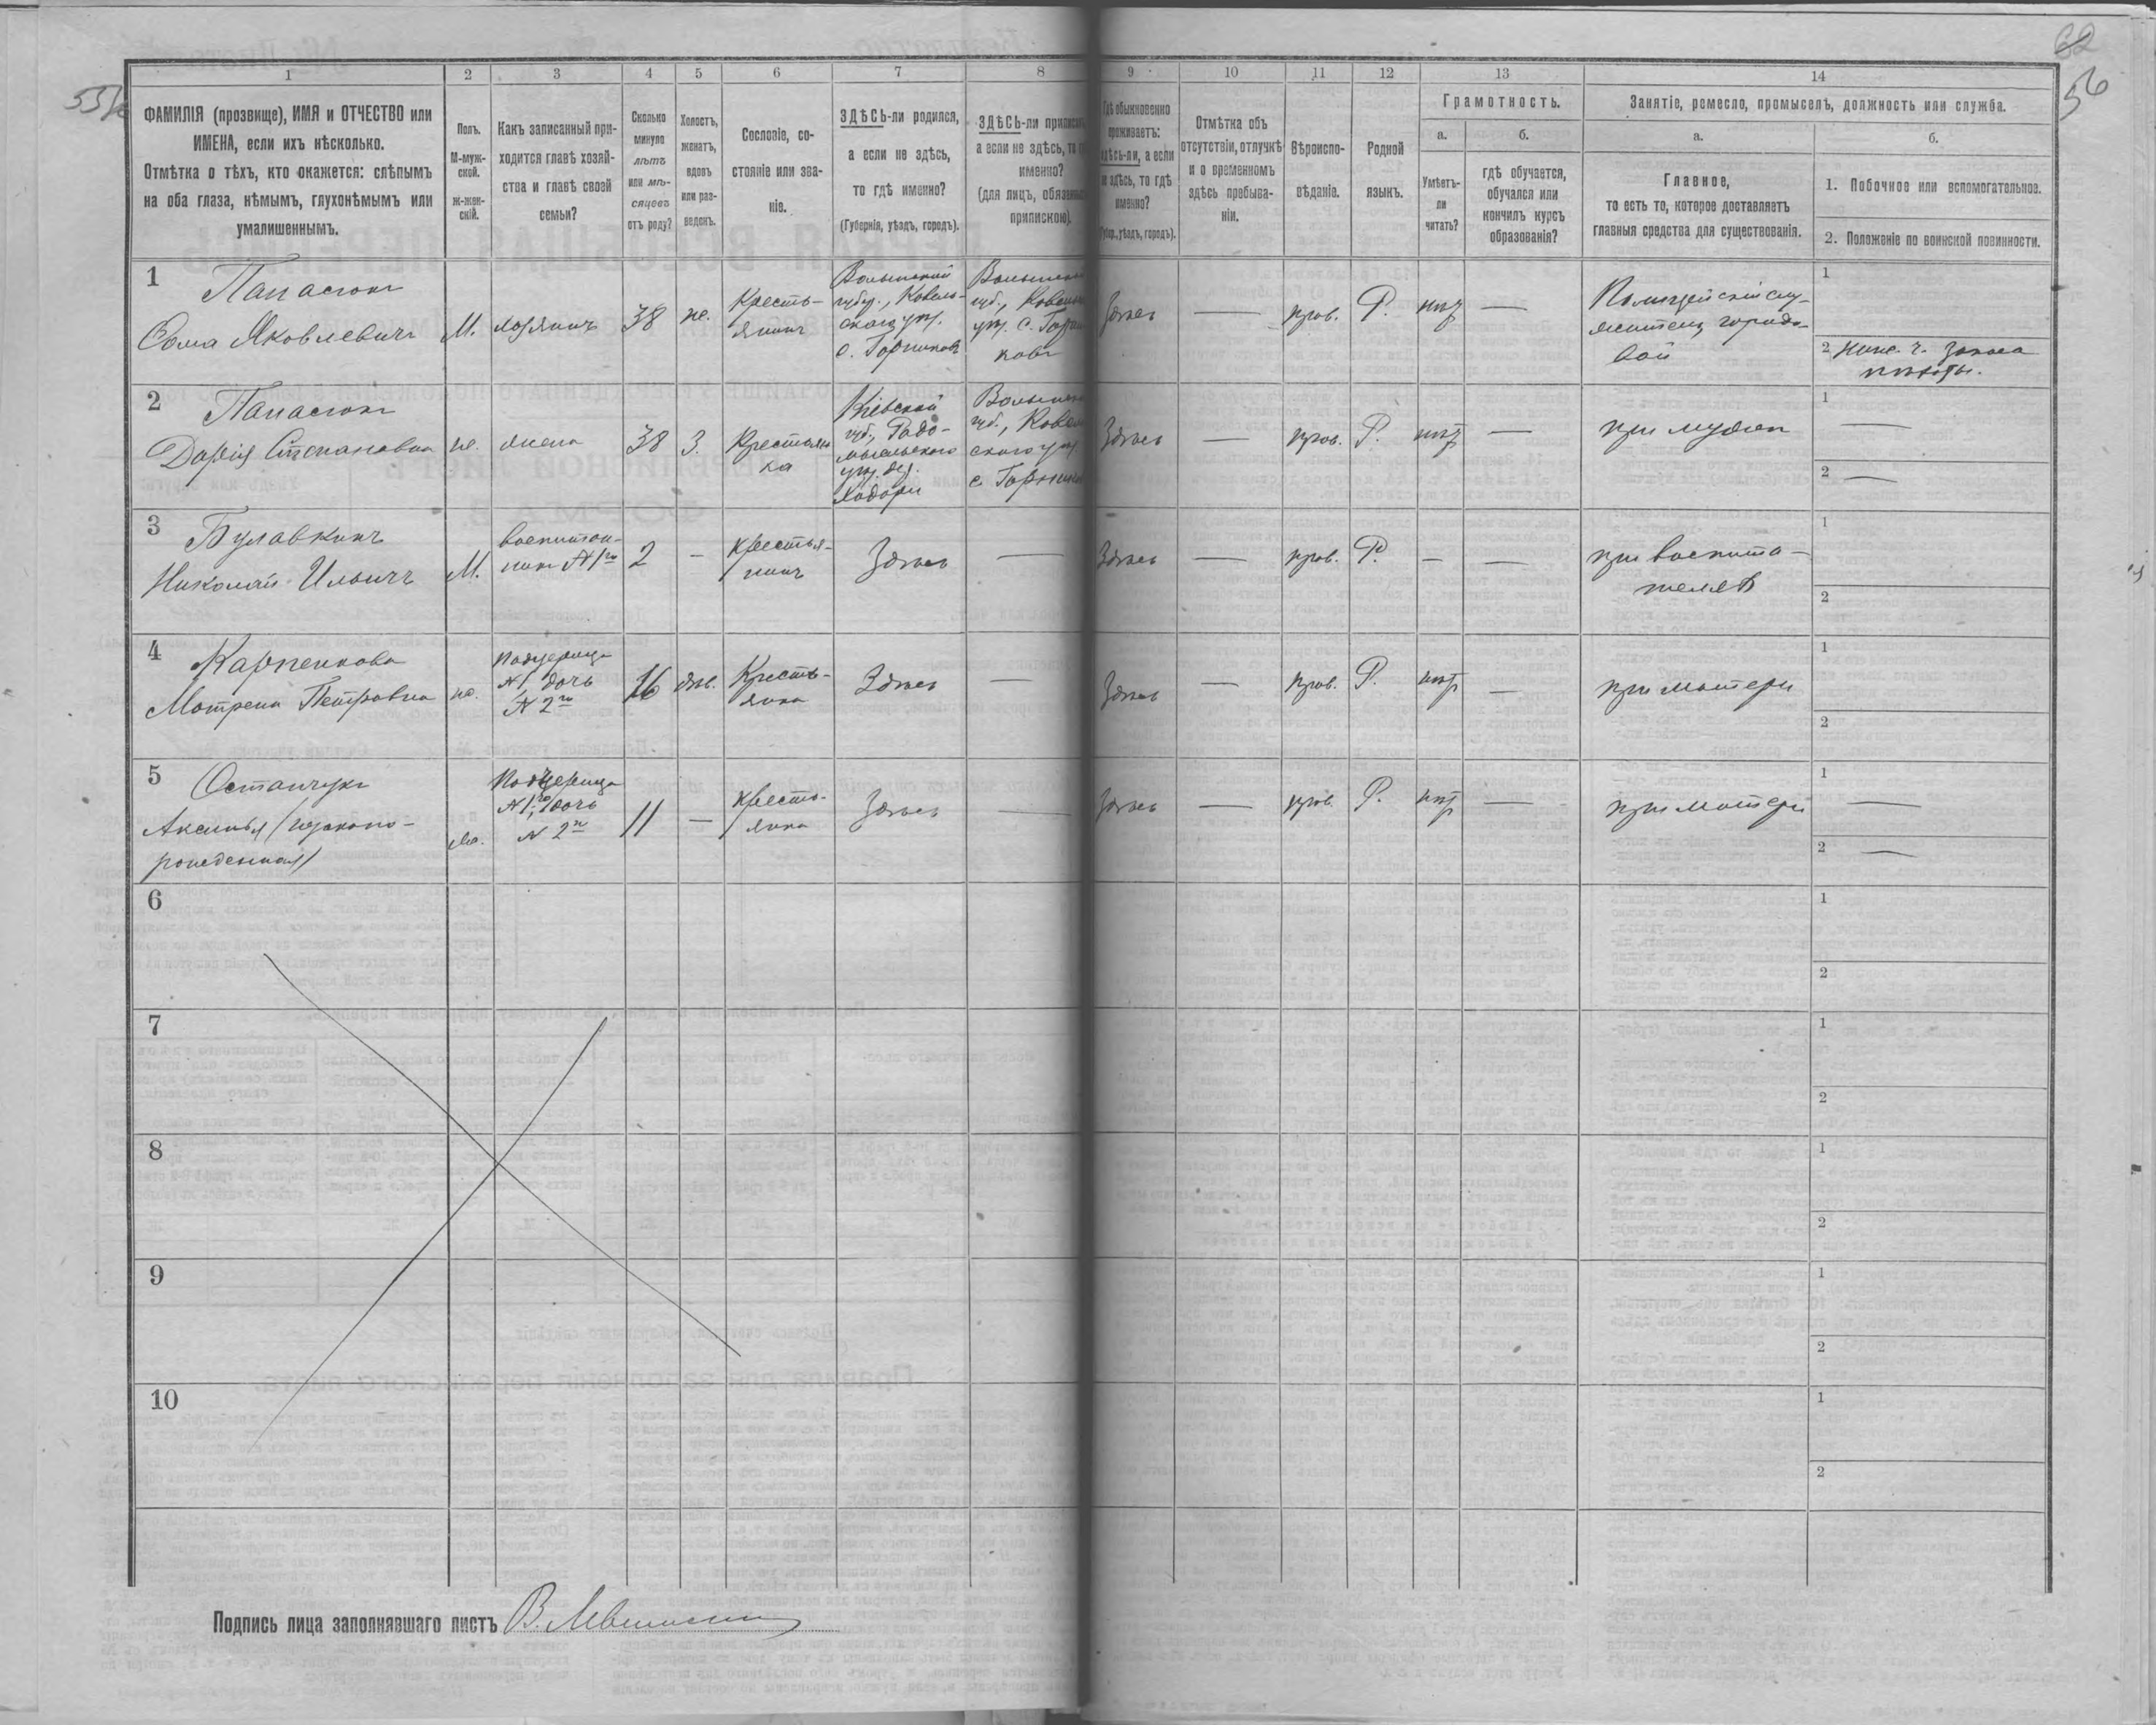 62
56
1
2
3
4
5
6
7
8
9
10
11
12
13
14
ФАМИЛІЯ (прозвище), ИМЯ и ОТЧЕСТВО или
ИМЕНА, если ихъ нѣсколько.
Отмѣтка о тѣхъ, кто окажется: слѣпымъ
на оба глаза, нѣмымъ, глухонѣмымъ или
умалишеннымъ.
Полъ.
М-муж-
ской.
Ж-жен-
скій.
Какъ записанный при-
ходится главѣ хозяй-
ства и главѣ своей
семьи?
Сколько
минуло
лѣтъ
или мѣ-
сяцевъ
отъ роду?
Холостъ,
женатъ,
вдовъ
или раз-
веденъ.
Сословіе, со-
стояніе или зва-
ніе.
ЗДѢСЬ-ли родился,
а если не здѣсь,
то гдѣ именно?
(Губернія, уѣздъ, городъ).
ЗДѢСЬ-ли
а если не здѣсь,
именно?
(для лицъ,
припискою).
Гдѣ обыкновенно
проживаетъ:
здѣсь-ли, а если
не здѣсь, то гдѣ
именно?
(Губер., уѣздъ, городъ).
Отмѣтка объ
отсутствіи, отлучкѣ
и о временномъ
здѣсь пребыва-
ніи.
Вѣроиспо-
вѣданіе.
Родной
языкъ.
Грамотность.
а.
Умѣетъ-
ли
читать?
б.
гдѣ обучается,
обучался или
кончилъ курсъ
образованія?
Занятіе, ремесло, промыселъ, должность или служба.
а.
Главное,
то есть то, которое доставляетъ
главныя средства для существованія.
б.
1. Побочное или вспомогательное.
2. Положеніе по воинской повинности.
1
Панасюкъ
Ѳома Яковлевичъ
М.
хозяинъ
38
же.
Кресть-
янинъ
Волынской
губ., Ковель-
скаго уѣз.
с. Горниковъ
Здѣсь
—
прав.
Р.
нѣтъ
—
Полицейскій слу-
житель, городо-
вой
1
2
2
Панасюкъ
Дарія Степановна
же.
жена
38
З.
Крестьян
ка
Кіевской
губ., Радо-
мысльскаго
уѣз. дер.
Ходори
скаго уѣз.
Здѣсь
—
прав.
Р.
нѣтъ
—
при мужѣ
1 —
2 —
3
Булавкинъ
Николай Ильичъ
М.
воспитан-
никъ №1го
2
—
Крестья-
нинъ
Здѣсь
—
Здѣсь
—
прав.
Р.
—
—
при воспита-
телѣ
1
2
4
Карпенкова
Матрена Петровна
же.
Падчерица
№1, дочь
№ 2й
16
дѣв.
Кресть-
янка
Здѣсь
—
Здѣсь
—
прав.
Р.
нѣтъ
—
при матери
1
2
5
Остапчукъ
Аксинья (незаконо-
рожденная)
же.
Падчерица
№1го, дочь
№ 2й
11
—
Кресть-
янка
Здѣсь
—
Здѣсь
—
прав.
Р.
нѣтъ
—
при матери
1 —
2 —
6
1
2
7
1
2
8
1
2
9
1
2
10
1
2
Подпись лица заполнявшаго листъ